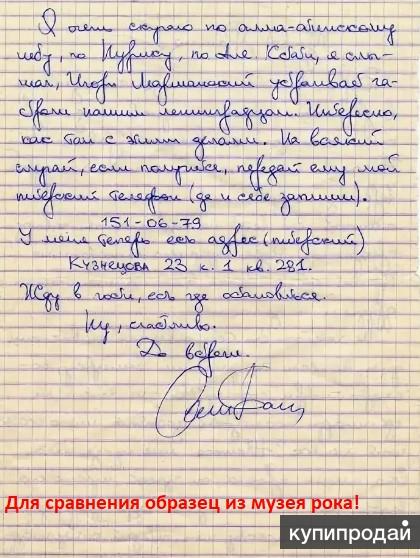 Я очень скучаю по алма-атинскому
небу, по Нурлису, по Але. Кстати, я слы-
шал, Игорь устраивал га-
строли нашим ленинградцам. Интересно,
как там с этими делами. На всякий
случай, если получится, передай ему мой
питерский телефон (да и себе запиши).
151-06-79
У меня теперь есть адрес (питерский)
Кузнецова 23 к. 1 кв. 281.
Жду в гости, есть где остановиться.
Ну, счастливо.
До встречи.
Для сравнения образец из музея рока!
купипродай